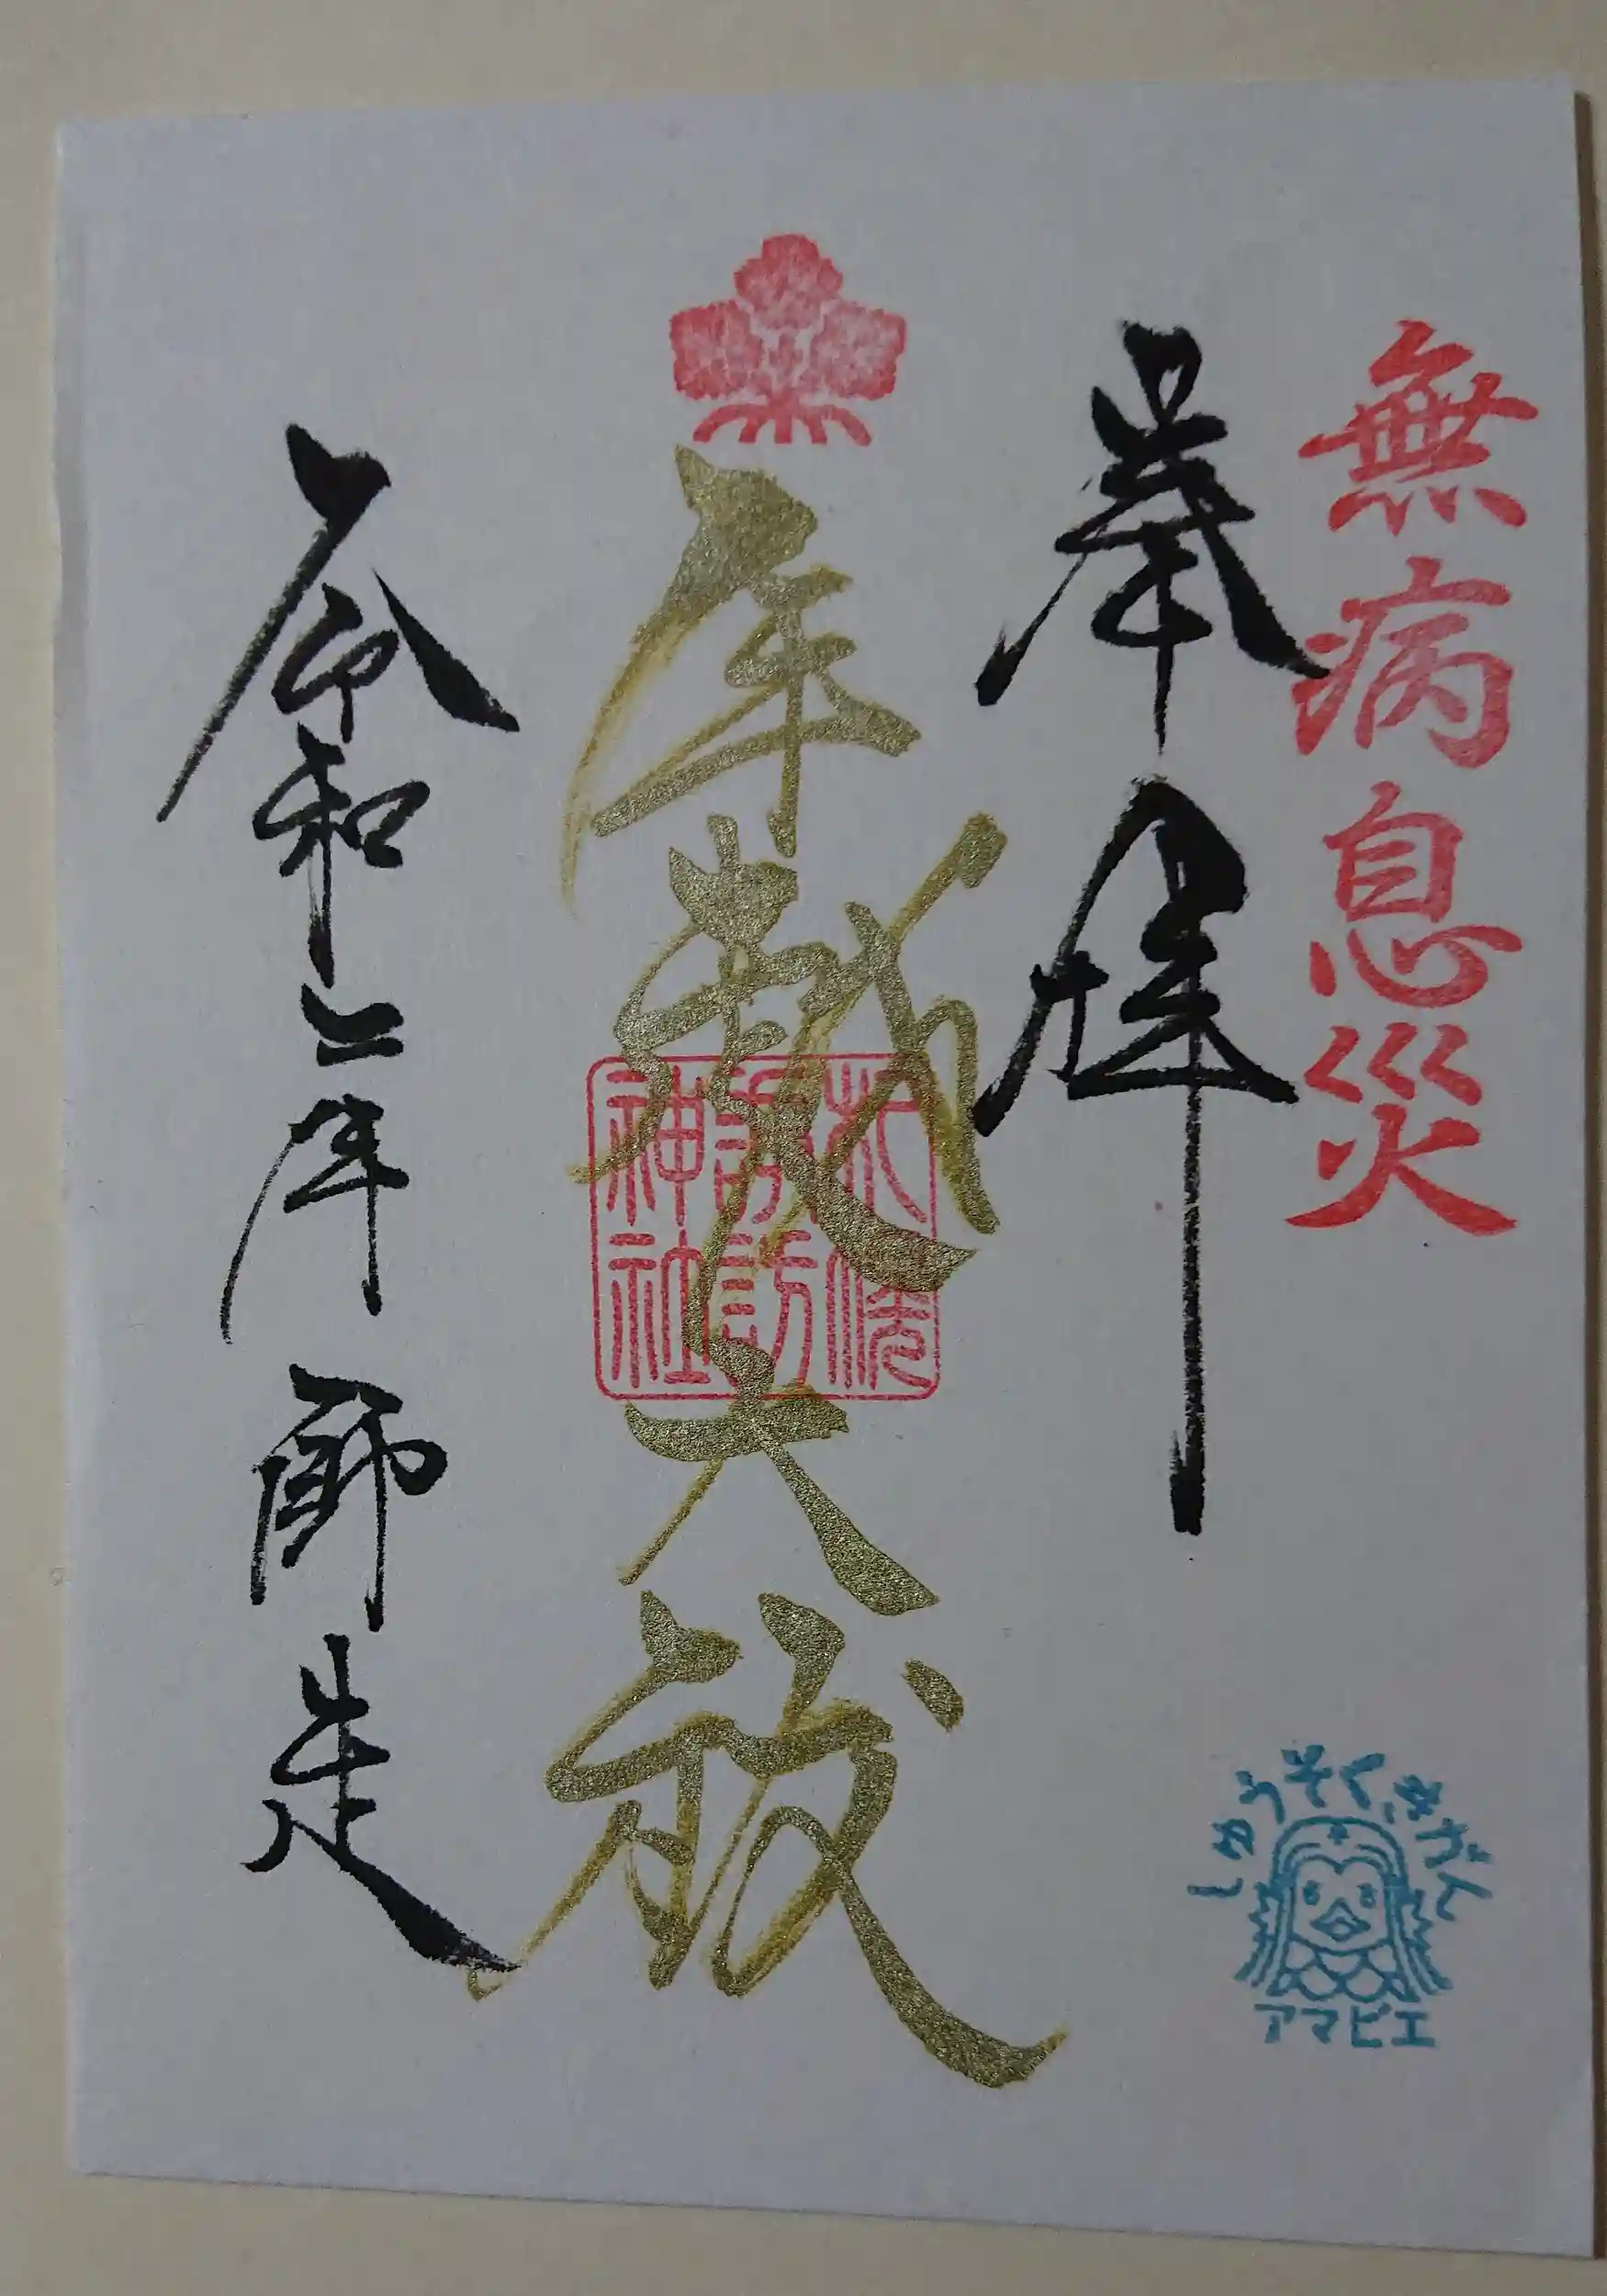 無病息災
奉拝
年越大祓
札幌
諏訪
神社
令和二年師走
しゅうそくきがん
アマビエ